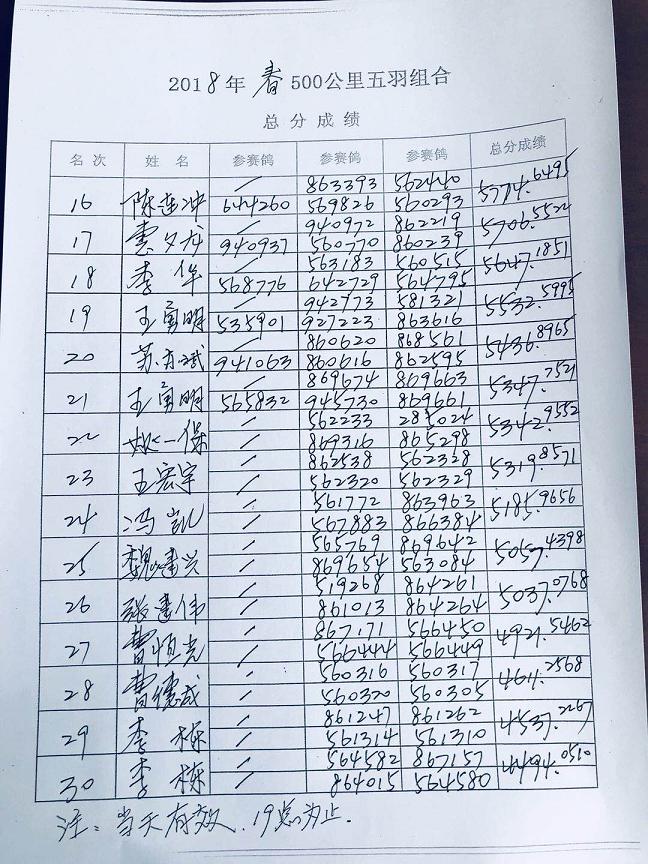 2018年 春 500公里五羽组合
总分成绩
名次 姓名 参赛鸽 参赛鸽 参赛鸽 总分成绩
/ 863393 562440
16 陈连冲 644260 569826 560293 5774.6495
/ 940972 862219
17 云夕龙 940937 560770 860239 5706.5524
/ 563183 560515
18 李华 568776 642729 564795 5647.1851
/ 942773 581321
19 王勇明 535901 927223 863616 5532.5995
/ 860620 868561
20 苏有斌 941063 860616 862595 5436.8965
/ 869674 869663
21 王勇明 565832 945730 869661 5347.7521
/ 562233 285024
22 姚一保 / 869316 865298 5342.9552
/ 862538 562328
23 王宏宇 / 562320 562329 5319.8571
/ 561772 863963
24 冯凯 / 567883 866384 5185.9656
/ 565769 869642
25 魏建兴 / 869654 563084 5057.4398
/ 519268 864261
26 张建伟 / 861013 864264 5037.0768
/ 867171 566450
27 曹恒光 / 566444 566449 4921.5462
/ 560316 560317
28 曹德成 / 560320 560305 4611.2568
/ 861247 861262
29 李栋 / 561314 561310 4537.2267
/ 564582 867157
30 李栋 / 864015 564580 4494.0510
注：当天有效．19点为止．